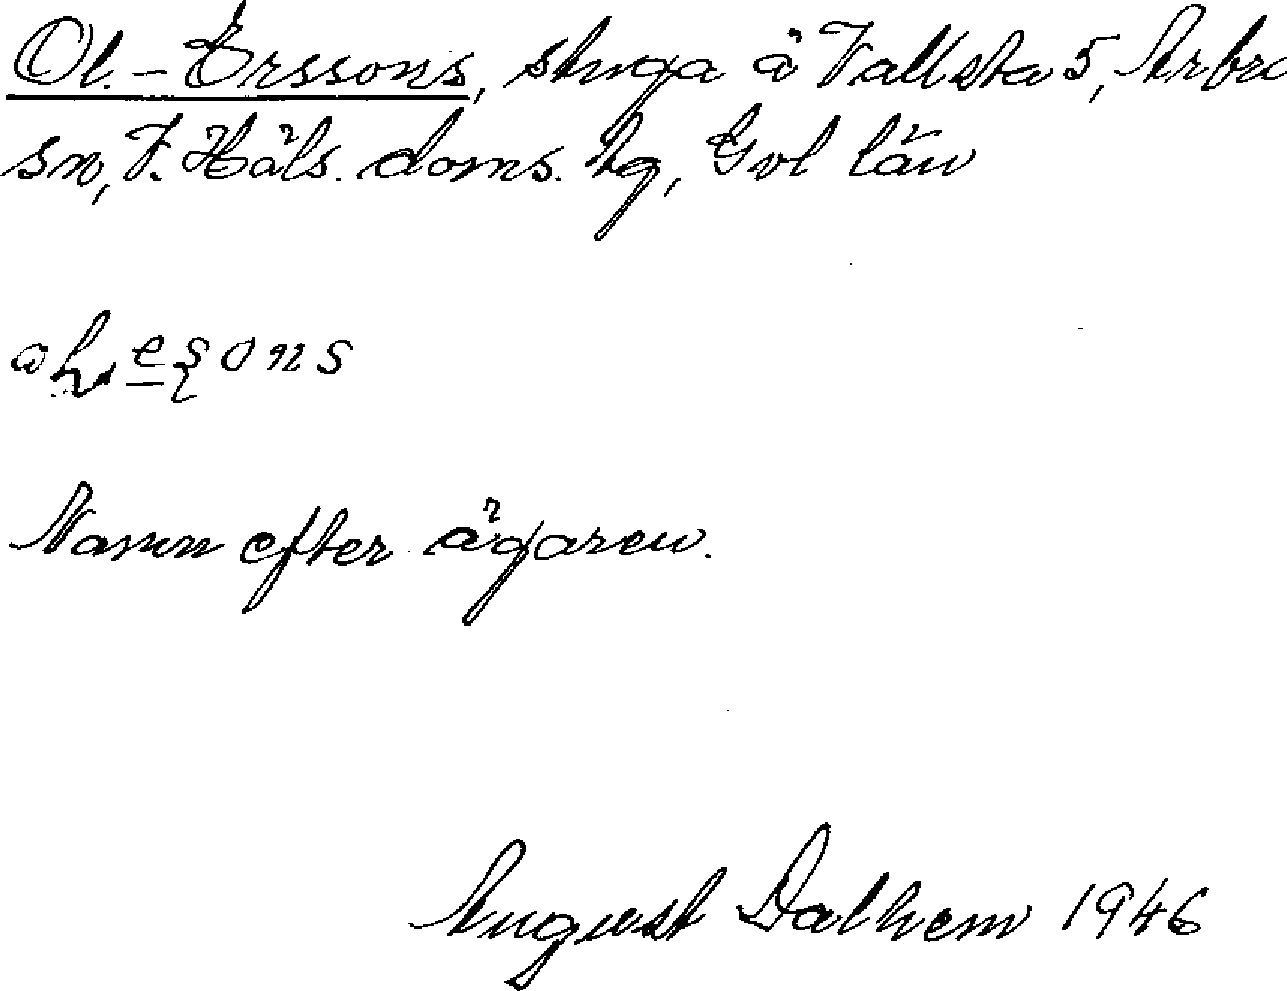 Ol.-Erssons, stuga å Vallsta 5, Arbrå
sn, V. Häls. doms. hg, Gvl län
Namn efter ägaren.
August Dalhem 1946